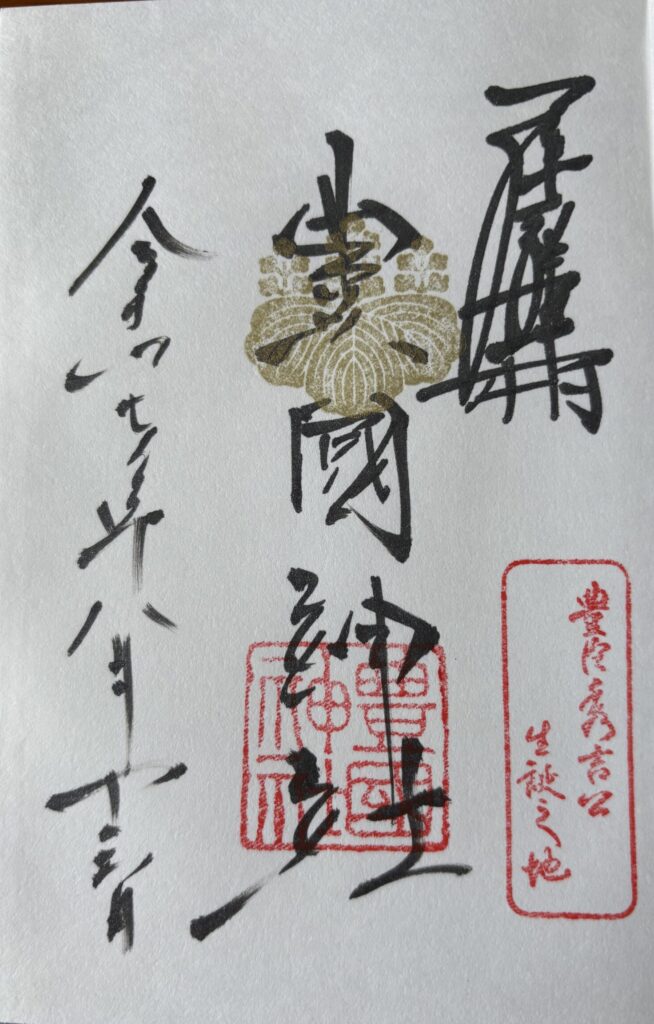 豊臣秀吉公
生誕之地
豊國神社
豊國
神社
令和七年八月十三日